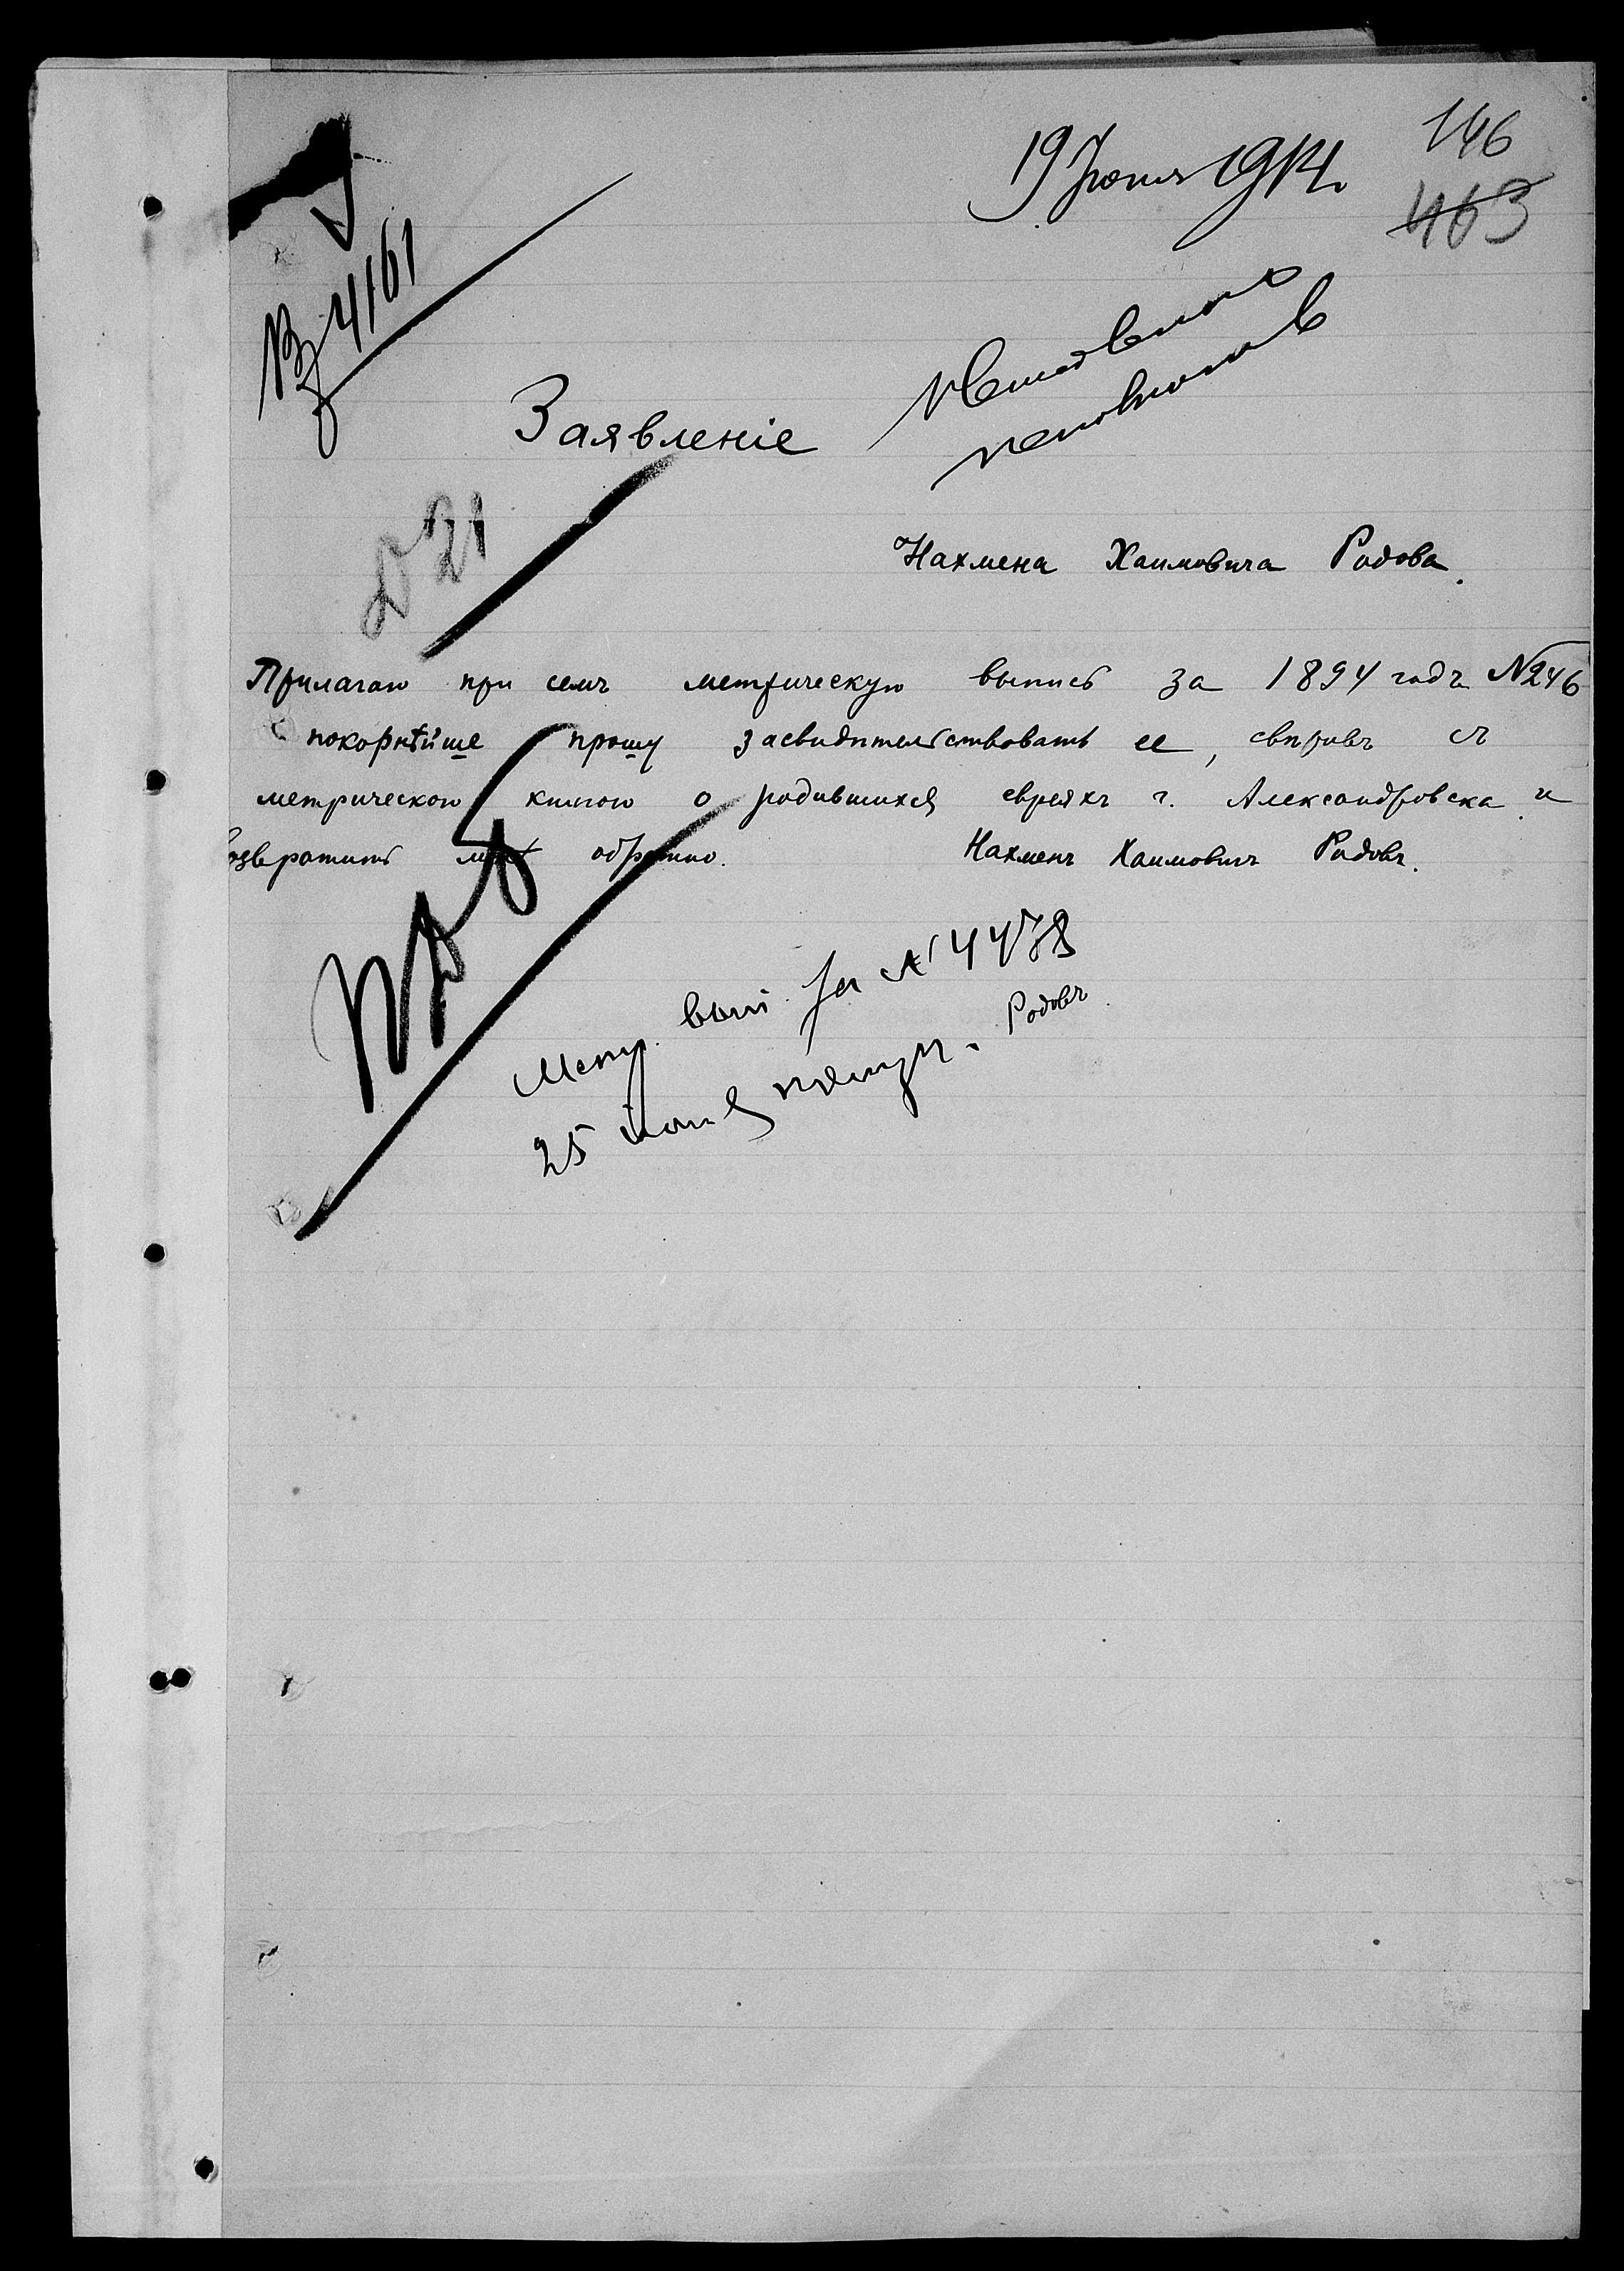 19 Іюня 1914
146
463
4161
Заявленіе
Д 21
Нахмена Хаимовича Радова.
Прилагаю при семъ метрическую выпись за 1894 годъ №246
покорнѣйше прошу засвидѣтельствовать ее, свѣривъ съ
метрической книгою о родившихся евреяхъ г. Александровска и
возвратить мнѣ обратно. Нахменъ Хаимовичъ Радовъ.
Метр. вып. за № 4478
25 іюня получ. Радовъ